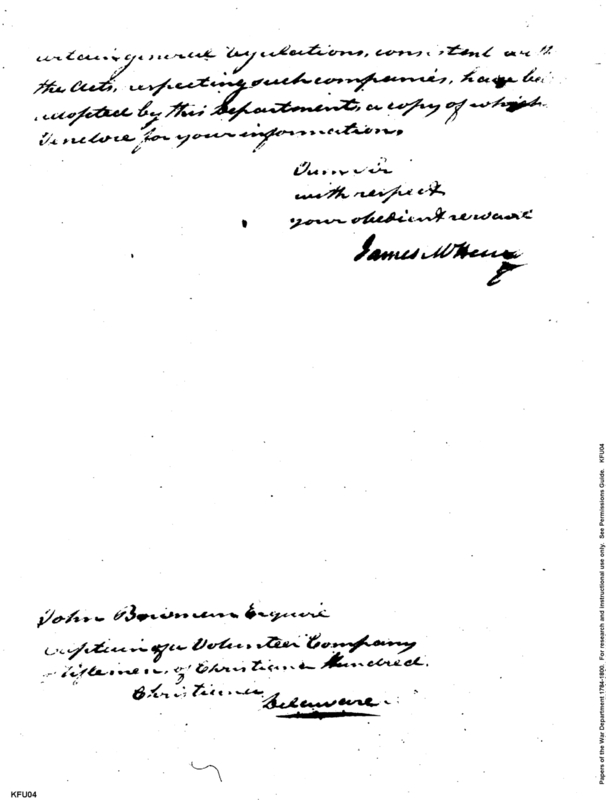 certain general regulations, consistent with
the Acts, respecting such companies, have been
adopted by this Department, a copy of which
I enclose for your information.
I am sir
with respect
your obedient servant
James McHenry
John Bowman Esquire
Captain of a Volunteer Company
Riflemen, of Christiana Hundred.
Christiana
Delaware
KFU04
Papers of the War Department 1784-1800. For research and instructional use only. See Permissions Guide. KFU04